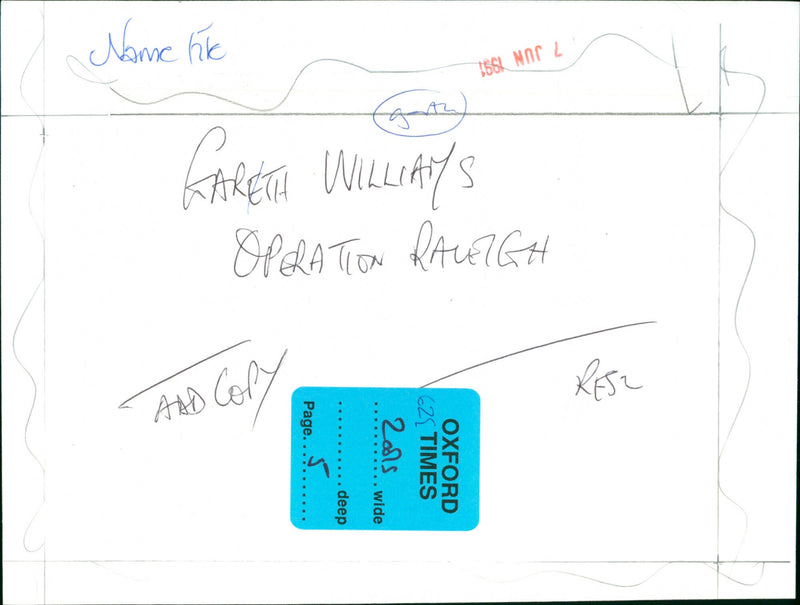 Name file
7 JUN 1991
GARETH WILLIAMS
OPERATION RALEIGH
ADD COPY
OXFORD
TIMES
625
2 cols wide
deep
Page 5